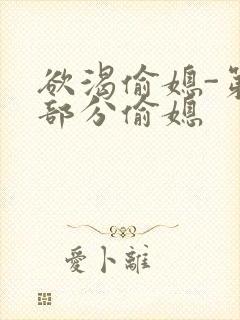 欲渴偷媳-第
部分偷媳
愛卜離